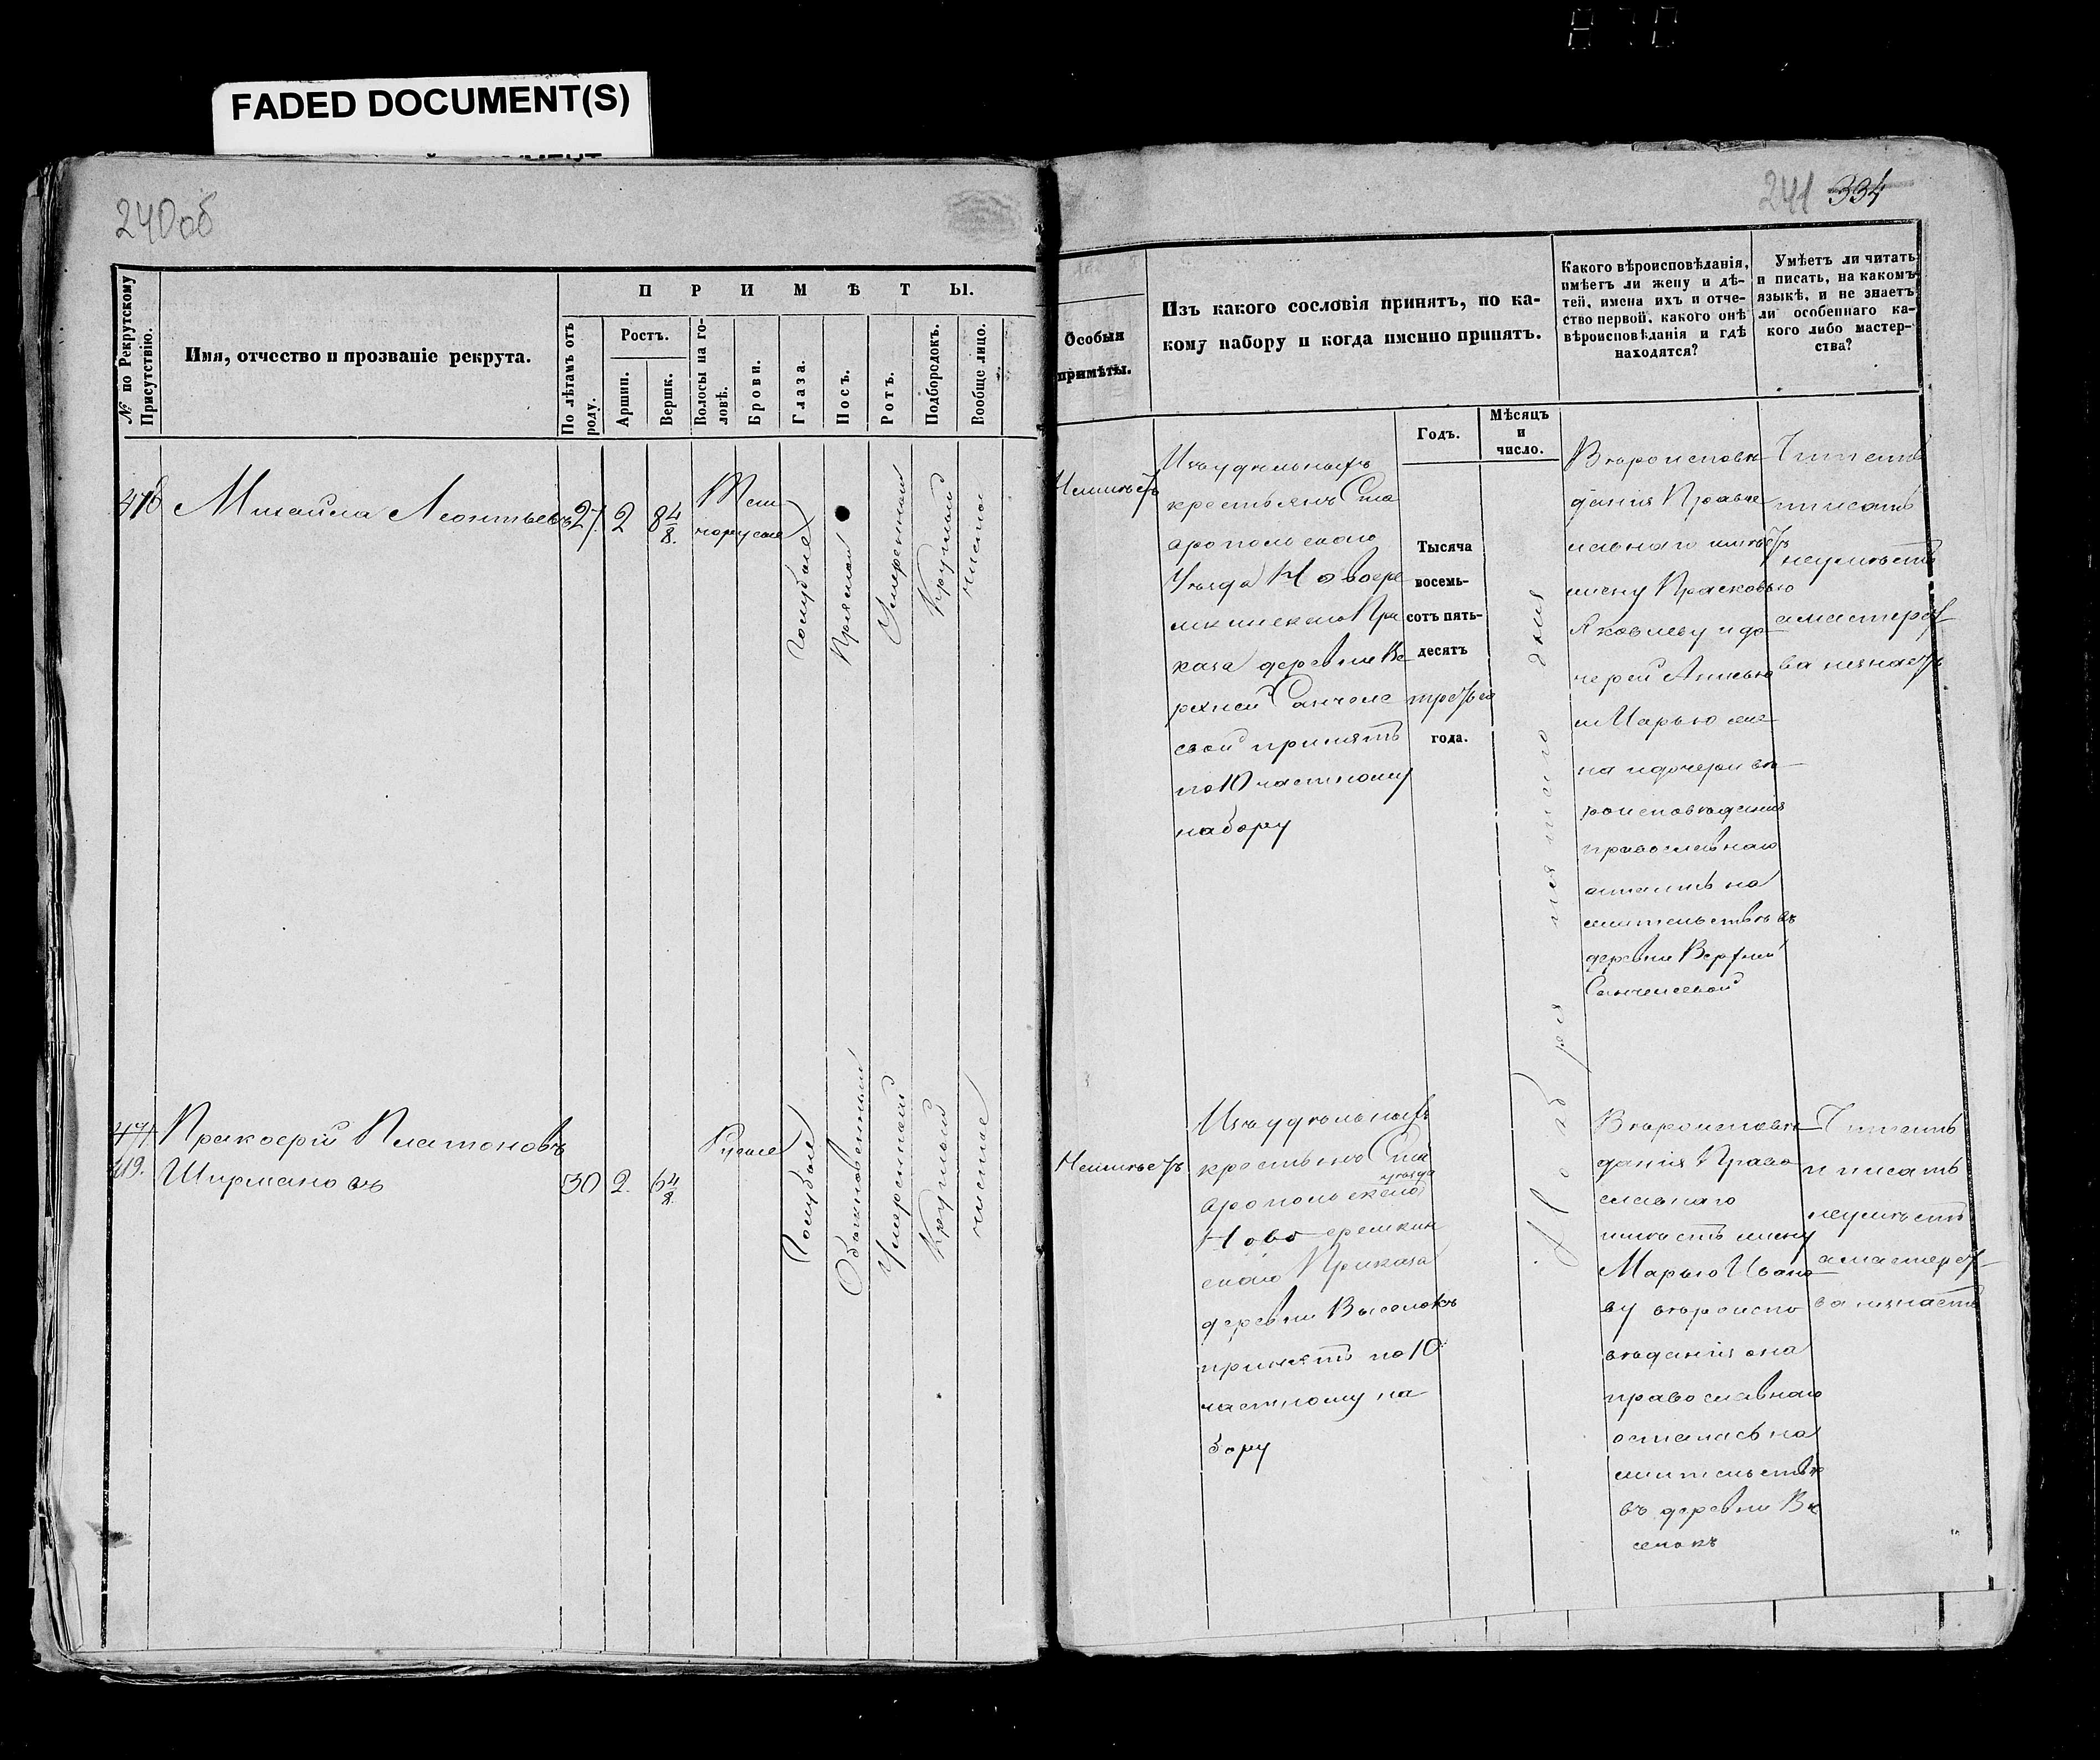 870
FADED DOCUMENT(S)
240об
№ по Рекрутскому
Присутствію.
Имя, отчество и прозваніе рекрута.
П Р И М Ѣ Т Ы.
По лѣтамъ отъ
роду.
Ростъ.
Аршин.
Вершк.
Волосы на го-
ловѣ.
Брови.
Глаза.
Носъ.
Ротъ.
Подбородокъ.
Вообще лицо.
Михайла Леонтьевъ
27.
2
8 4/8.
Тем
норусые
Голубые
Прямой
Умеренный
Круглый
чистое
Прокофій Платоновъ
419.
Ширмановъ
30
2.
6 4/8
Русые
Голубые
Обыкновенный
Умеренный
Круглый
чистое
241 334
Особыя
примѣты.
Изъ какого сословія принятъ, по ка-
кому набору и когда именно принятъ.
Какого вѣроисповѣданія,
имѣетъ ли жену и дѣ-
тей, имена ихъ и отче-
ство первой, какого онѣ
вѣроисповѣданія и гдѣ
находятся?
Умѣетъ ли читать
и писать, на какомъ
языкѣ, и не знаетъ
ли особеннаго ка-
кого либо мастер-
ства?
Годъ.
Мѣсяцъ
и
число.
Неимѣетъ
Изъ удѣльныхъ
крестьянъ Ста
вропольскаго
Уѣзда Новоере
мкинскаго При
каза деревни Ве
рхней Санчеле
евой принятъ
по 10 частному
набору
Тысяча
восемь-
сотъ пять-
десятъ
третьяго
года.
Ноября пятаго дня
Вѣроисповѣ
данія Правос
лавнаго имѣетъ
жену Прасковью
Яковлеву и до
черей Анисью
и Марью же
на и дочери вѣ
роисповѣданія
православнаго
жительствѣ въ
деревни Верхней
Санчелеевой
Читать
писать
неумѣетъ
а мастерст
ва незнаетъ
Неимѣетъ
Изъ удѣльныхъ
крестьянъ Ста
уѣзда
вропольскаго
Ново еремкин
скаго Приказа
деревни Выселокъ
принятъ по 10
частному на
бору
Вѣроисповѣ
данія Право
славнаго
имѣетъ жену
Марью Ивано
ву вѣроиспо
вѣданія она
православнаго
осталась на
жительствѣ
въ деревни Вы
селокъ
Читать
и писать
неумѣетъ
а мастерст
ва незнаетъ